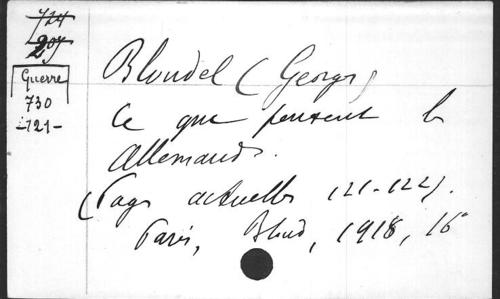 724
209
Guerre
730
-121-
Blondel (Georges)
Ce que pensent les
Allemands.
(Pages actuelles 121-122).
Paris, Bloud, 1918, 16°